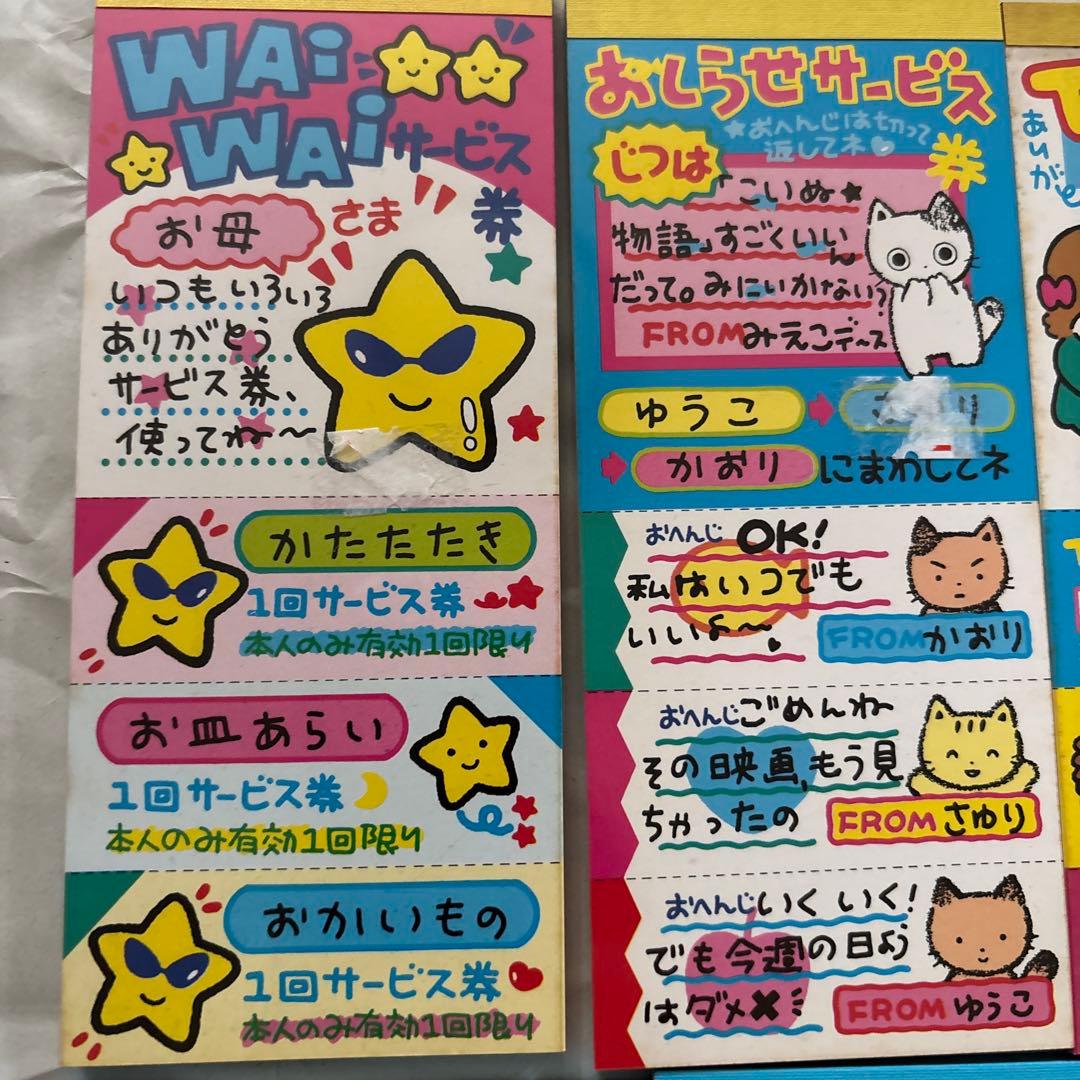 WAi
WAi サービス
券
お母 さま
いつもいろいろ
ありがとう
サービス券、
使ってね〜
かたたたき
1回サービス券
本人のみ有効1回限り
お皿あらい
1回サービス券
本人のみ有効1回限り
おかいもの
1回サービス券
本人のみ有効1回限り
おしらせサービス
券
★おへんじは切って
返してネ♥
じつは
「こいぬ★
物語」すごくいいん
だって。みにいかない?
FROMみえこデース
ゆうこ
かおり にまわしてネ
おへんじ OK!
私はいつでも
いいよ〜。
FROMかおり
おへんじごめんね
その映画,もう見
ちゃったの
FROMさゆり
おへんじいくいく!
でも今週の日よう
はダメ✖
FROMゆうこ